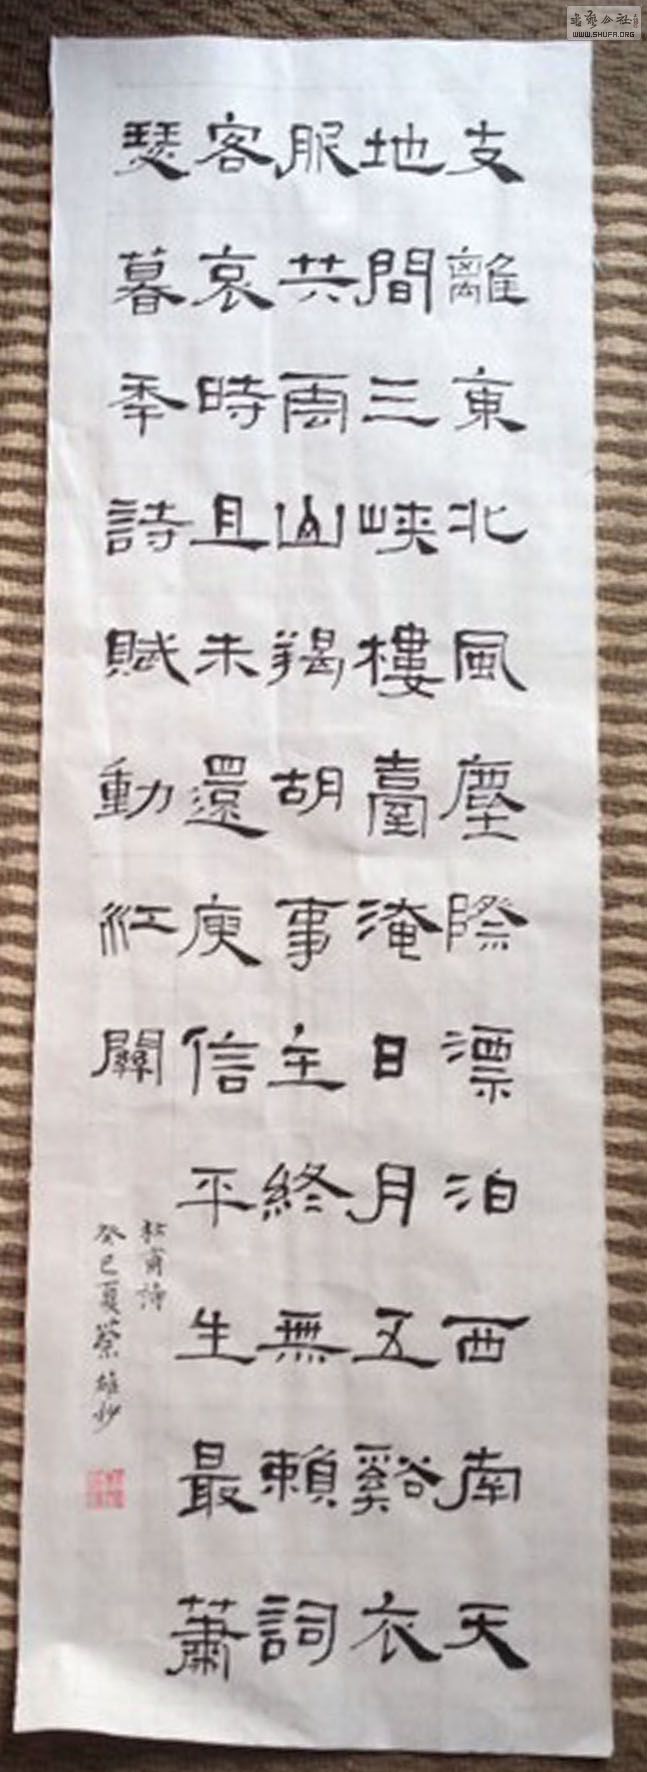 支離東北風塵際漂泊西南天
地間三峽樓臺淹日月五谿衣
服共雲山羯胡事主終無賴詞
客哀時且未還庾信平生最蕭
瑟暮秊詩賦動江關
杜甫詩
癸巳夏蔡雄抄
書藝公社
WWW.SHUFA.ORG